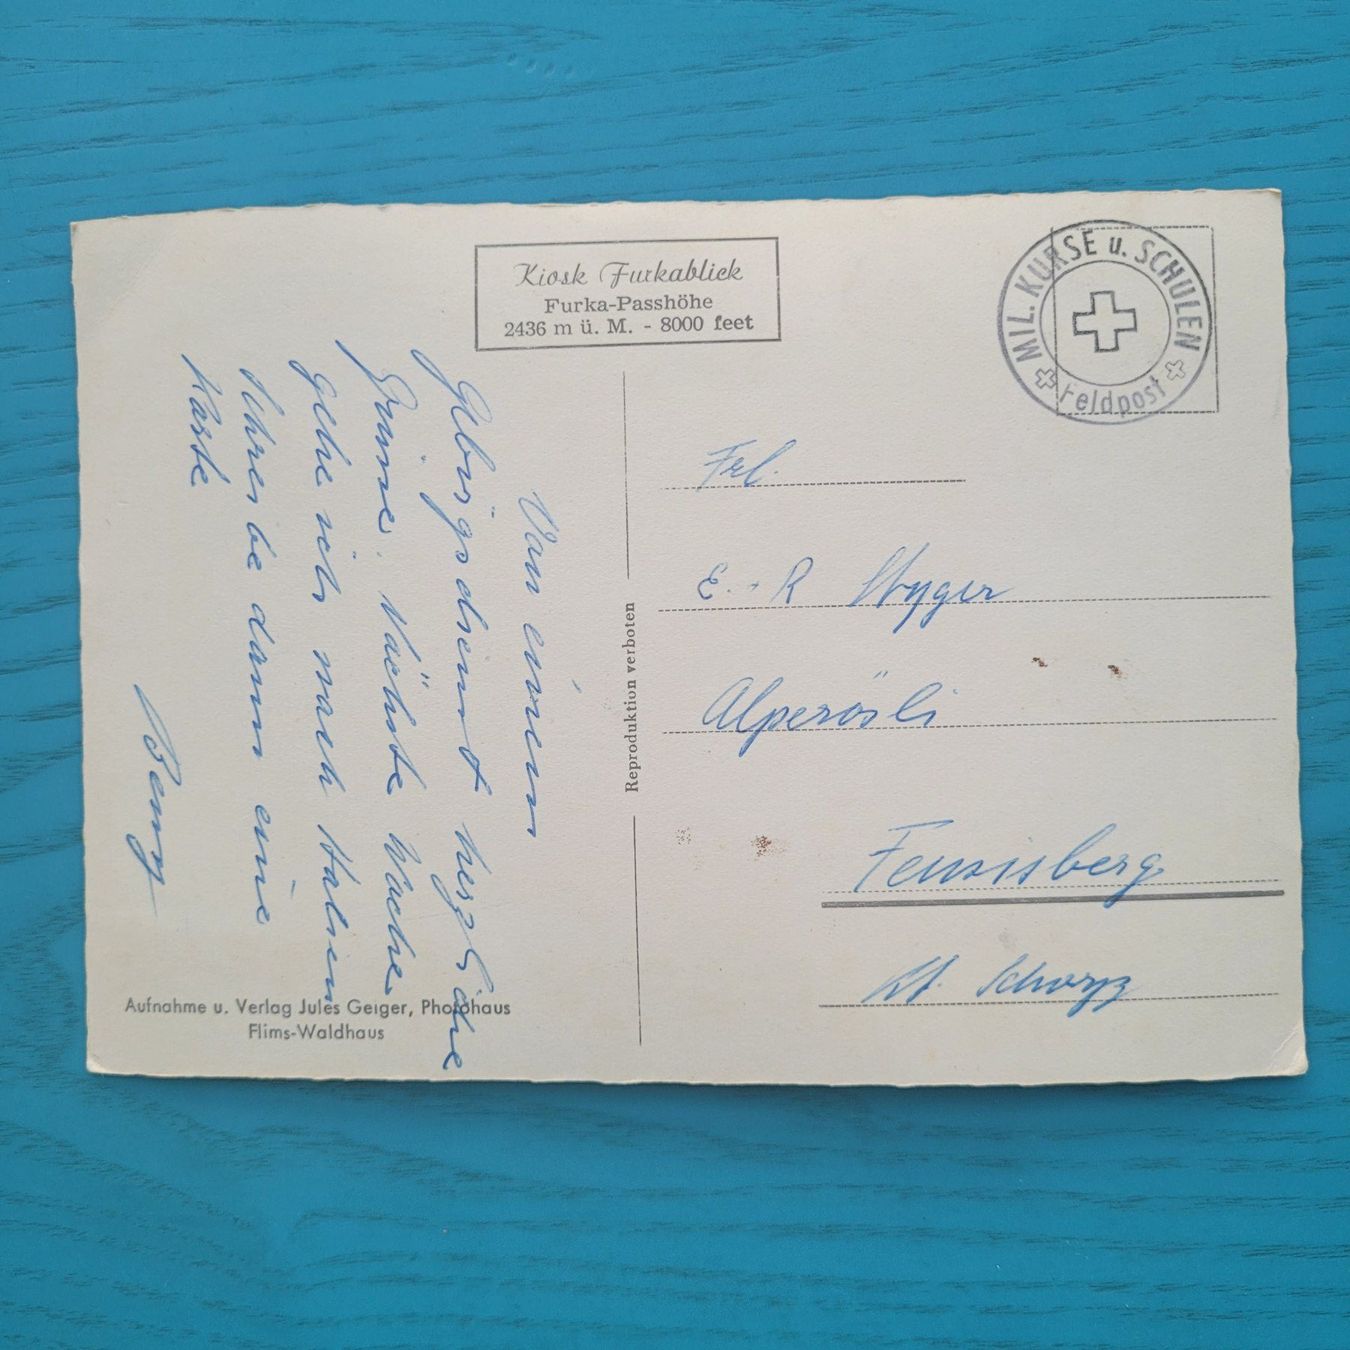 Kiosk Furkablick
Furka-Passhöhe
2436 m ü. M. - 8000 feet
MIL. KURSE u. SCHULEN
Feldpost
Von einem
Gebirgsdienst herzliche
Grüsse. Nächste Woche
gehe ich nach Italien
schreibe dann eine
Karte
Reproduktion verboten
Frl.
E. - R Wyger
Alperösli
Feusisberg
Kt. Schwyz
Aufnahme u. Verlag Jules Geiger, Photohaus
Flims-Waldhaus